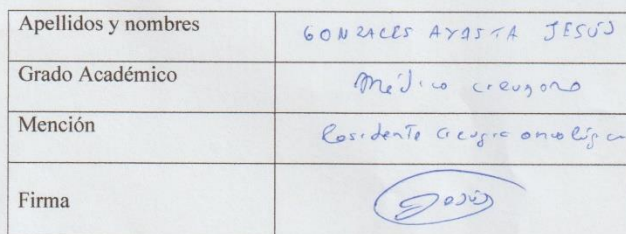 Apellidos y nombres GONZALES AYASTA JESÚS
Grado Académico Médico cirujano
Mención Residente cirugía oncológica
Firma Jesús